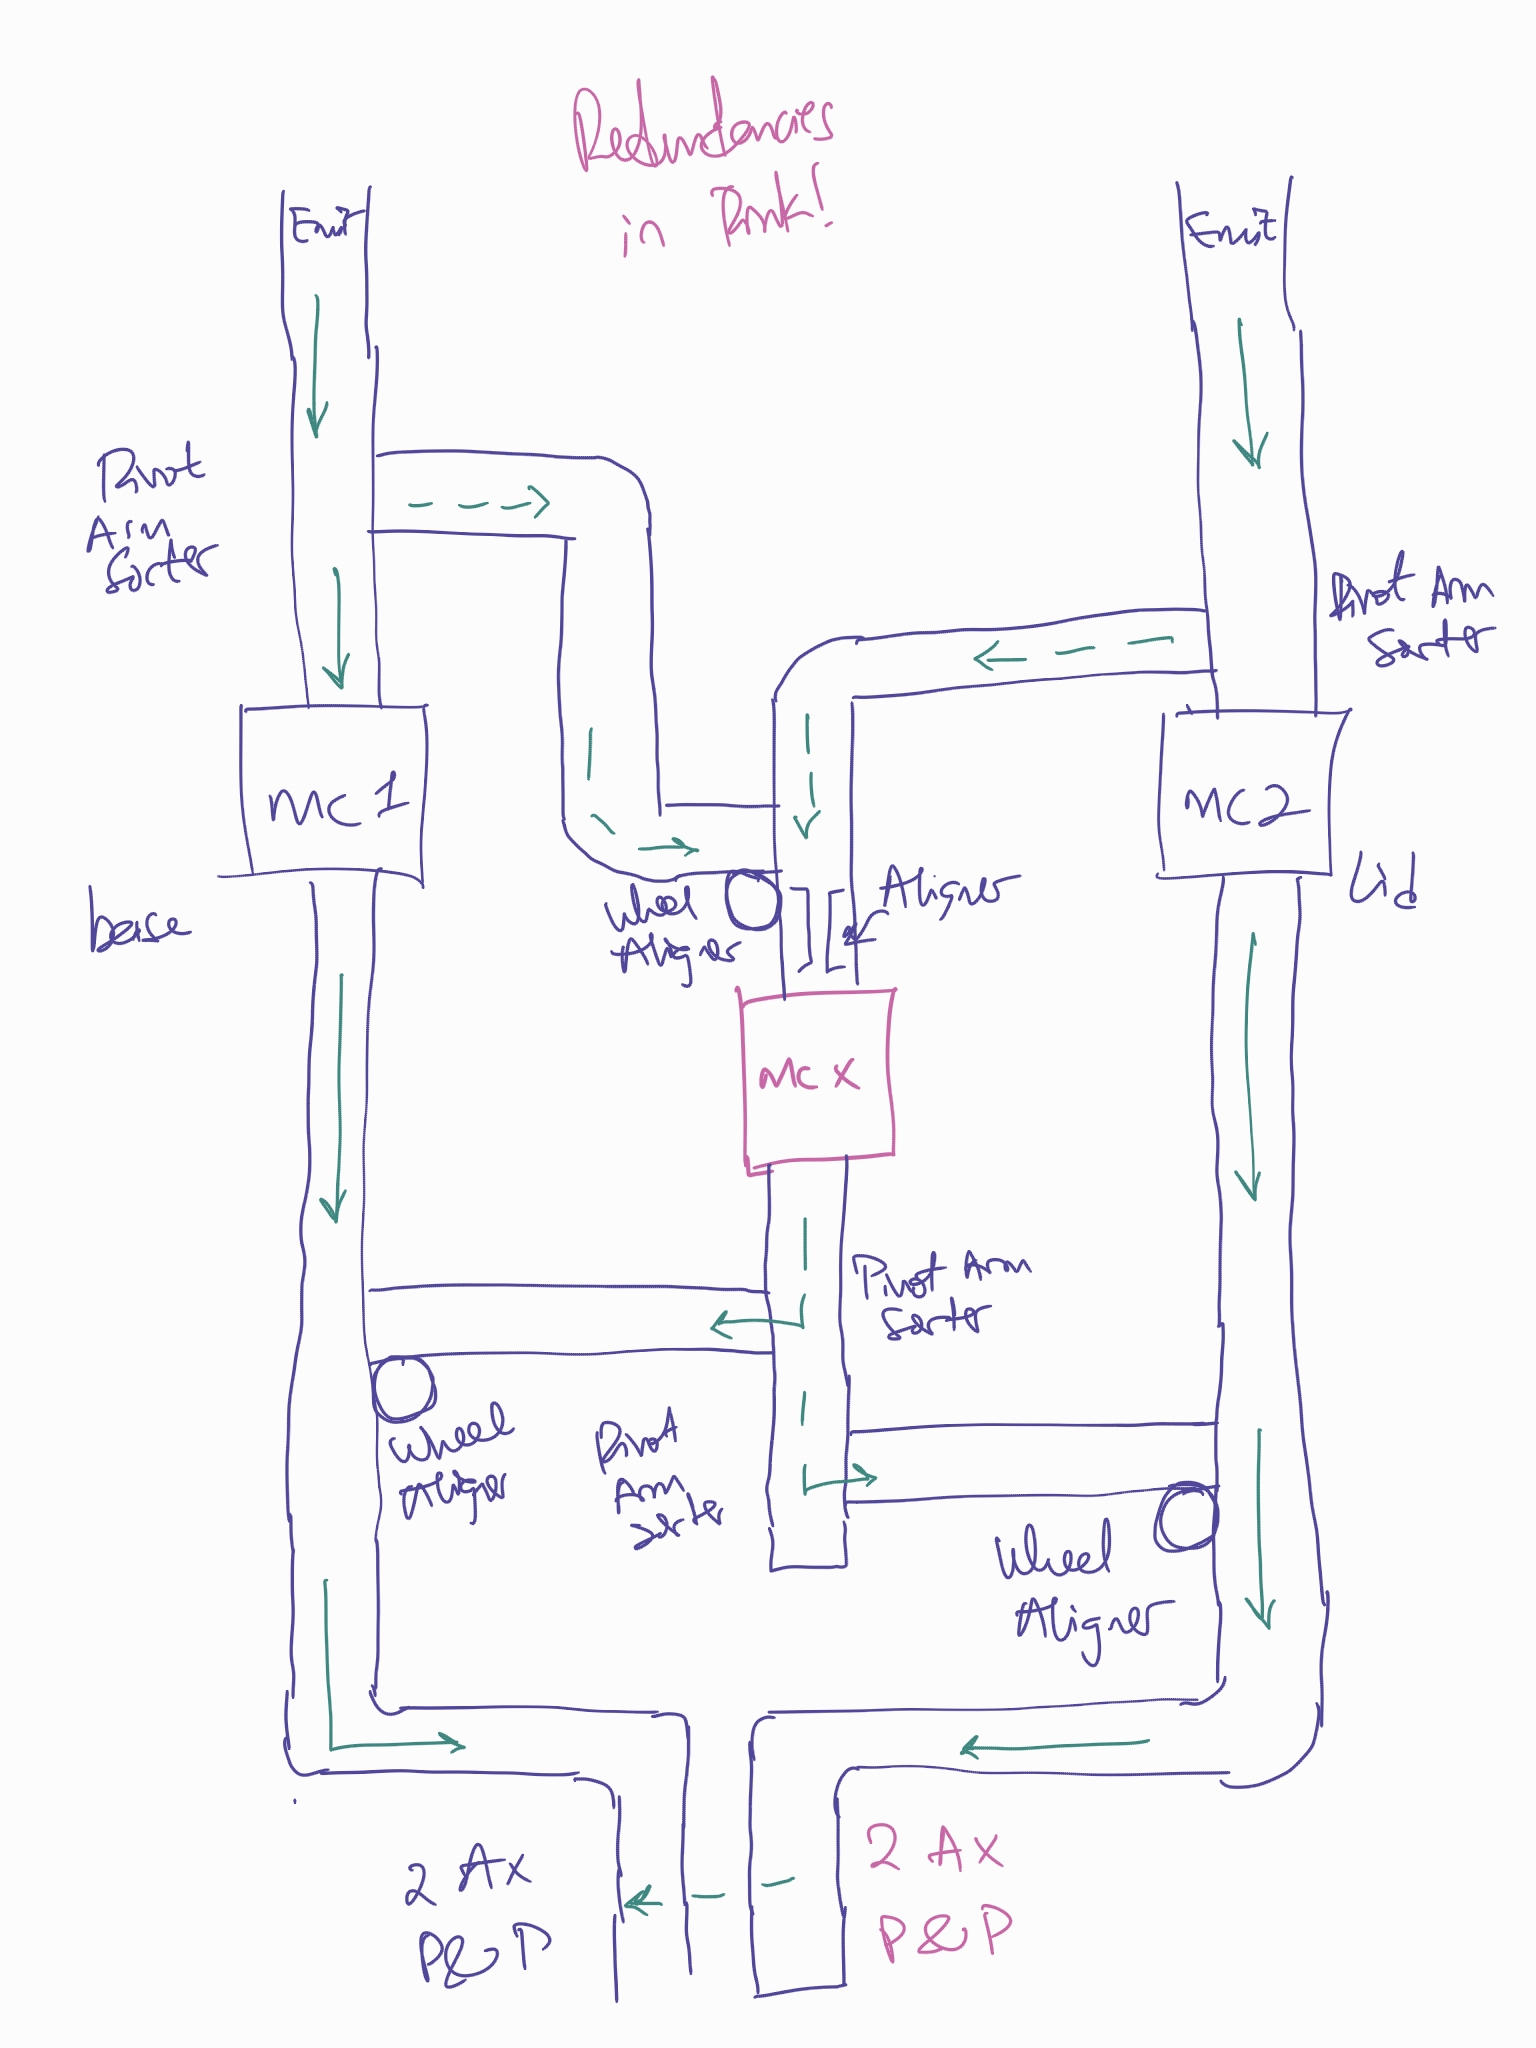 Redundancies
in Pink!
Emit
Emit
Pivot
Arm
Sorter
Pivot Arm
Sorter
MC1
MC2
base
Lid
Wheel
Aligner
Aligner
MC X
Pivot Arm
Sorter
Wheel
Aligner
Pivot
Arm
Sorter
Wheel
Aligner
2 Ax
P&P
2 Ax
P&P